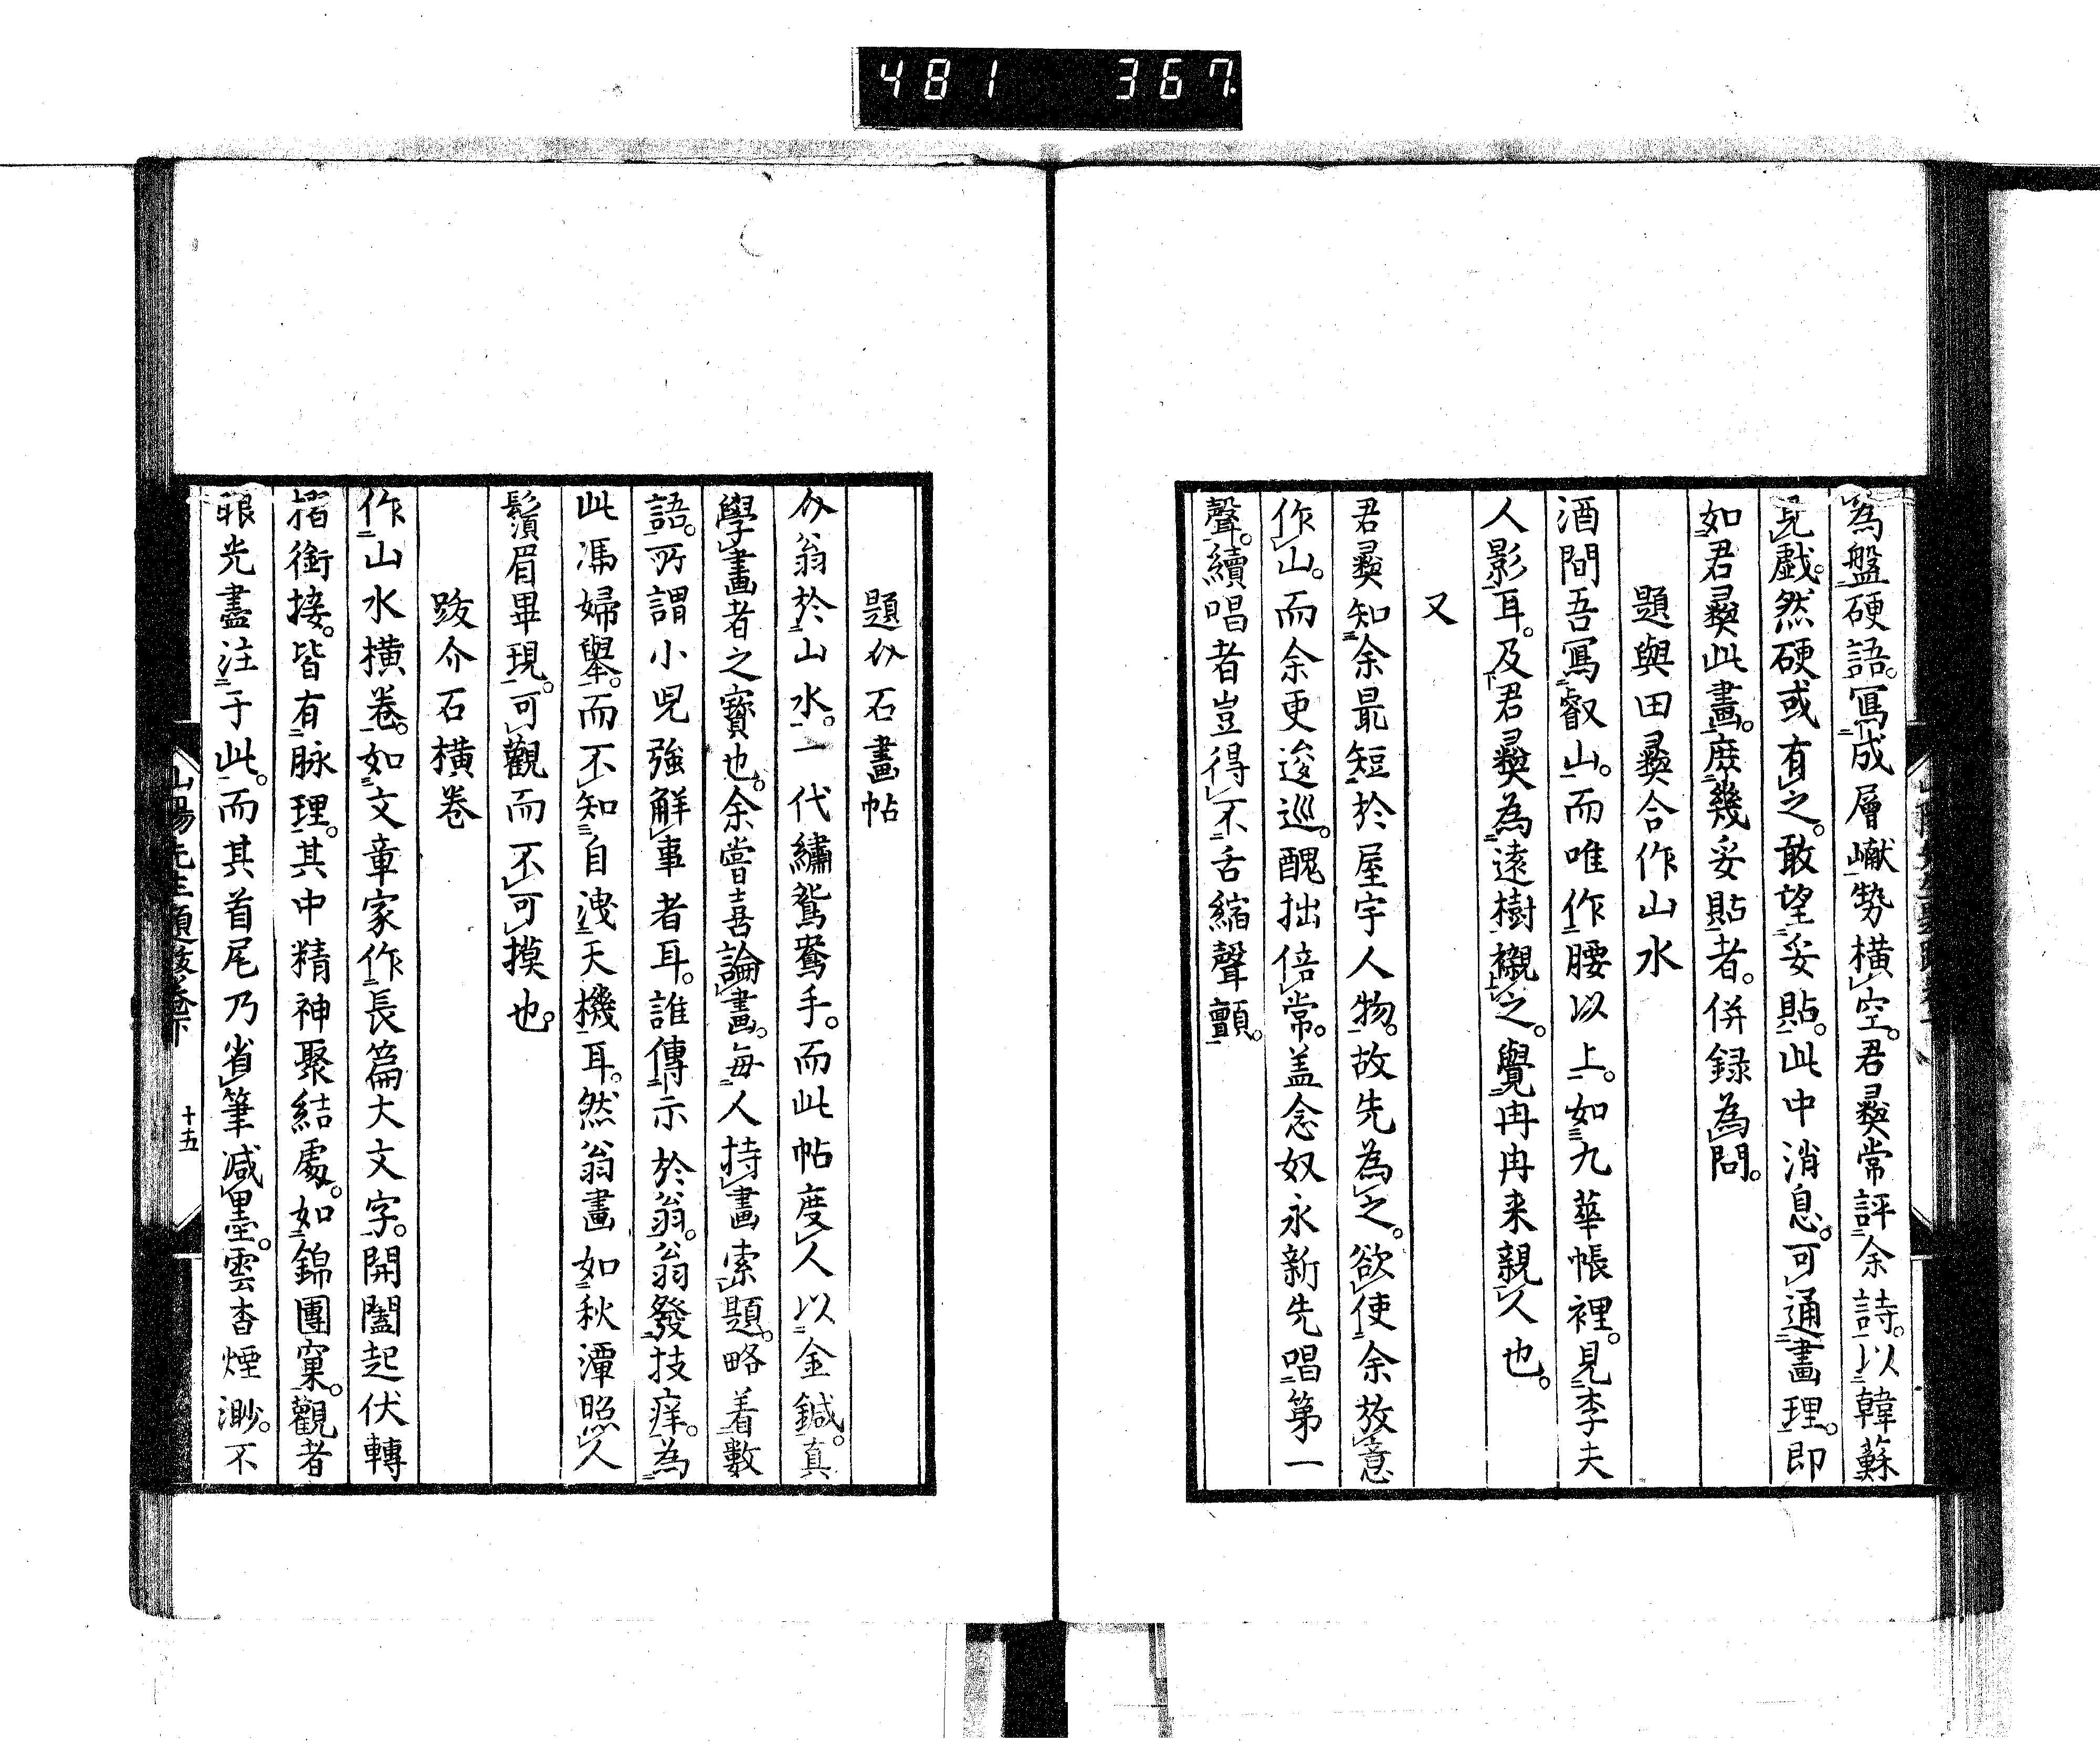 481 367
為盤硬語。寫成層巘勢橫空。君彝常評余詩。以韓蘇
見戲。然硬或有之。敢望妥貼。此中消息。可通畫理。即
如君彝此畫。庶幾妥貼者。併録為問。
題與田彝合作山水
酒間吾寫叡山。而唯作腰以上。如九華帳裡。見李夫
人影耳。及君彝為遠樹襯之。覺冉冉来親人也。
又
君彝知余最短於屋宇人物。故先為之。欲使余放意
作山。而余更逡巡。醜拙倍常。盖念奴永新先唱第一
聲。續唱者豈得不舌縮聲顫。
題介石畫帖
介翁於山水。一代繡鴛鴦手。而此帖度人以金鍼。真
學畫者之寳也。余嘗喜論畫。每人持畫索題。略着數
語。所謂小兒強解事者耳。誰傳示於翁。翁發技痒。為
此馮婦舉。而不知自洩天機耳。然翁畫如秋潭照人
鬚眉畢現。可觀而不可摸也。
跋介石橫巻
作山水橫巻。如文章家作長篇大文字。開闔起伏轉
摺銜接。皆有脉理。其中精神聚結處。如錦團窠。觀者
眼光盡注于此。而其首尾乃省筆減墨。雲杳煙渺。不
山陽先生題跋巻下
十五